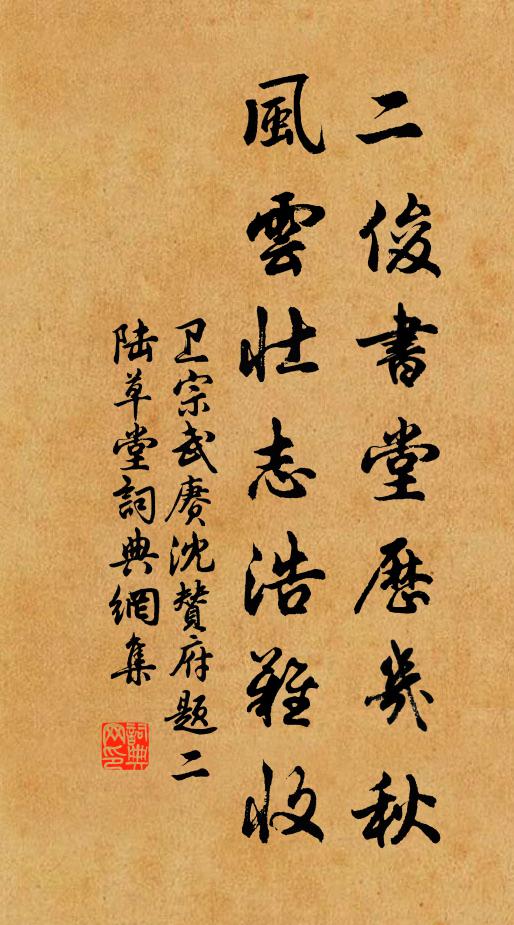 二俊書堂歷幾秋
風雲壯志浩難收
卫宗武賡沈贊府題二
陆草堂詞典網集
詞典網印